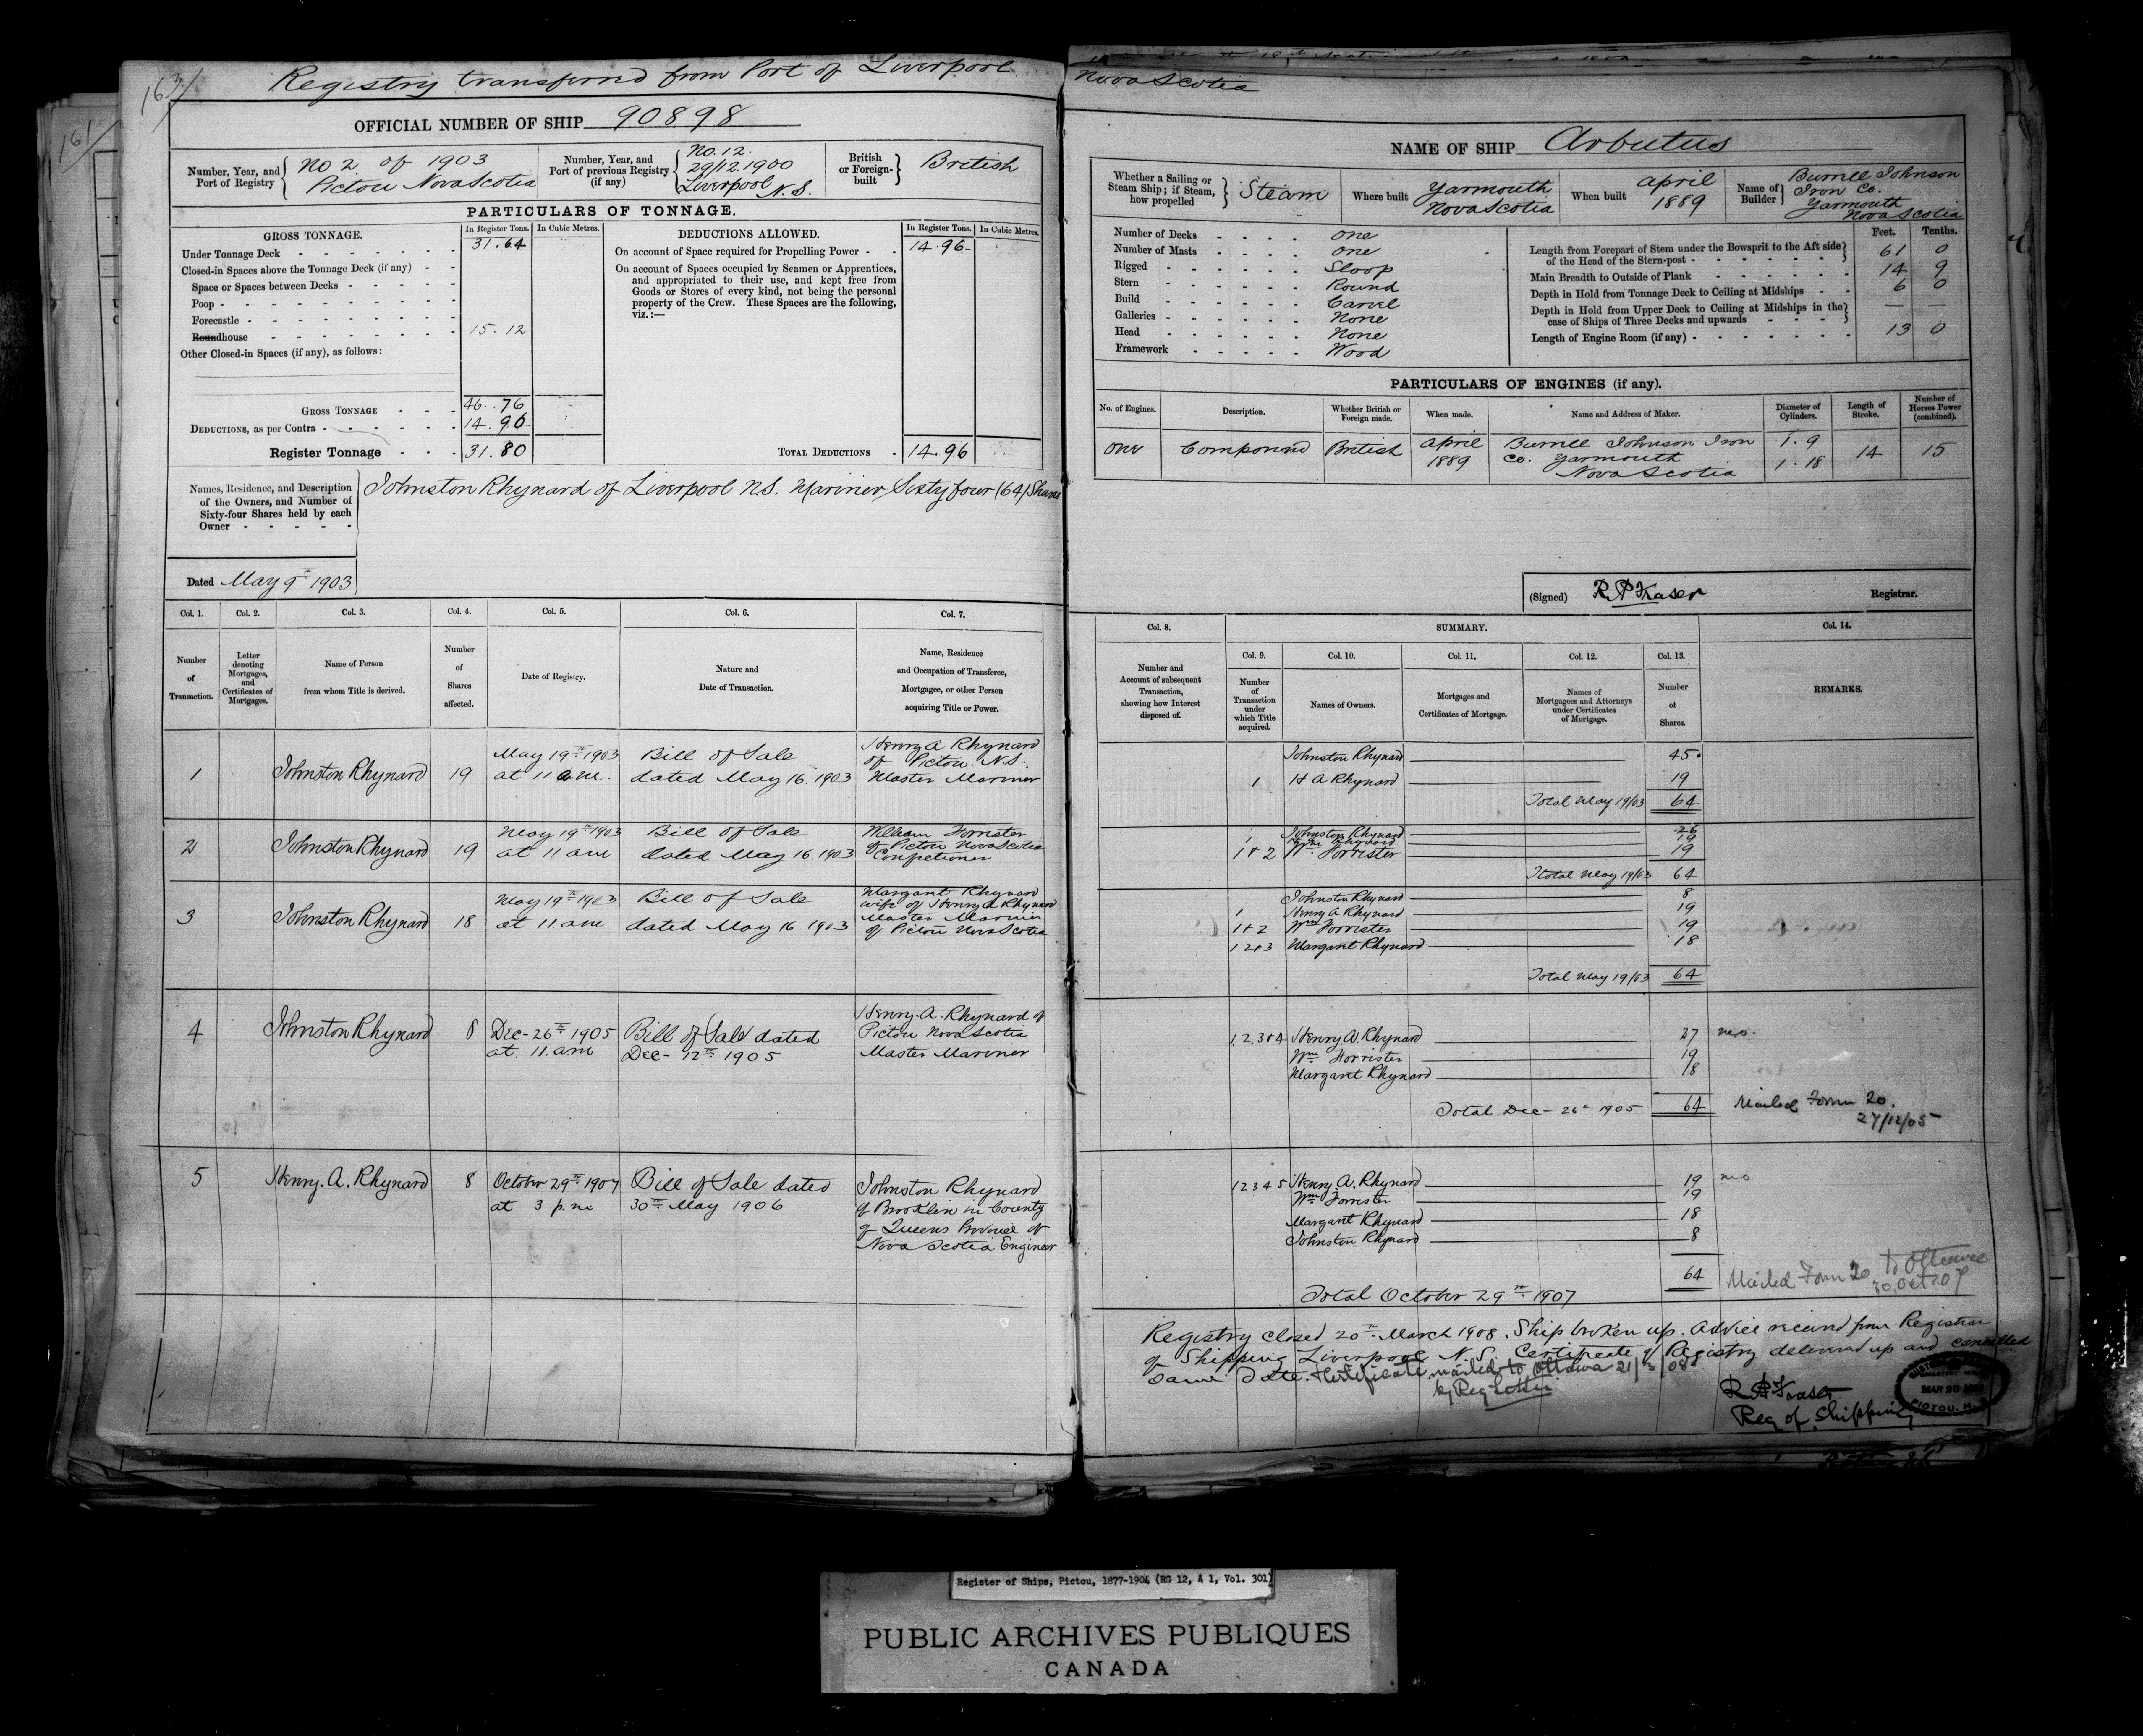 163/
161/
Registry transferred from Port of Liverpool Nova Scotia
OFFICIAL NUMBER OF SHIP 90898
NAME OF SHIP Arbutus
Number, Year, and Port of Registry { No 2 of 1903
Pictou Nova Scotia
Number, Year, and Port of previous Registry (if any) { No. 12.
29/12.1900
Liverpool N.S.
British or Foreign-built } British
PARTICULARS OF TONNAGE.
GROSS TONNAGE. In Register Tons. In Cubic Metres.
Under Tonnage Deck - 31.64
Closed-in Spaces above the Tonnage Deck (if any) -
Space or Spaces between Decks -
Poop -
Forecastle -
Roundhouse - 15.12
Other Closed-in Spaces (if any), as follows:
GROSS TONNAGE - 46.76
DEDUCTIONS, as per Contra - 14.96
Register Tonnage - 31.80
DEDUCTIONS ALLOWED. In Register Tons. In Cubic Metres.
On account of Space required for Propelling Power - 14.96
On account of Spaces occupied by Seamen or Apprentices,
and appropriated to their use, and kept free from
Goods or Stores of every kind, not being the personal
property of the Crew. These Spaces are the following,
viz.:—
TOTAL DEDUCTIONS - 14.96
Names, Residence, and Description
of the Owners, and Number of
Sixty-four Shares held by each
Owner -
Johnston Rhynard of Liverpool N.S. Mariner Sixty four (64) Shares
Dated May 9th 1903
Whether a Sailing or Steam Ship; if Steam, how propelled } Steam
Where built Yarmouth
Nova Scotia
When built April
1889
Name of Builder } Burrell Johnson
Iron Co.
Yarmouth
Nova Scotia
Number of Decks - One
Number of Masts - One
Rigged - Sloop
Stern - Round
Build - Carvel
Galleries - None
Head - None
Framework - Wood
Feet. Tenths.
Length from Forepart of Stem under the Bowsprit to the Aft side
of the Head of the Stern-post - 61 0
Main Breadth to Outside of Plank 14 9
Depth in Hold from Tonnage Deck to Ceiling at Midships - 6 0
Depth in Hold from Upper Deck to Ceiling at Midships in the
case of Ships of Three Decks and upwards - — —
Length of Engine Room (if any) - 13 0
PARTICULARS OF ENGINES (if any).
No. of Engines. Description. Whether British or Foreign made. When made. Name and Address of Maker. Diameter of Cylinders. Length of Stroke. Number of Horses Power (combined).
One Compound British April 1889 Burrell Johnson Iron Co. Yarmouth Nova Scotia 1. 9 1. 18 14 15
(Signed) R. P. Fraser Registrar.
Col. 1. Col. 2. Col. 3. Col. 4. Col. 5. Col. 6. Col. 7.
Number of Transaction.
Letter denoting Mortgages, and Certificates of Mortgages.
Name of Person from whom Title is derived.
Number of Shares affected.
Date of Registry.
Nature and Date of Transaction.
Name, Residence and Occupation of Transferee, Mortgagee, or other Person acquiring Title or Power.
Col. 8. SUMMARY. Col. 14.
Number and Account of subsequent Transaction, showing how Interest disposed of.
Col. 9. Col. 10. Col. 11. Col. 12. Col. 13.
Number of Transaction under which Title acquired.
Names of Owners.
Mortgages and Certificates of Mortgage.
Names of Mortgagees and Attorneys under Certificates of Mortgage.
Number of Shares.
REMARKS.
1 Johnston Rhynard 19 May 19th 1903 at 11 a.m. Bill of Sale dated May 16. 1903 Henry A Rhynard of Pictou N.S. Master Mariner
Johnston Rhynard 45
1 H A Rhynard 19
Total May 19/03 64
2 Johnston Rhynard 19 May 19th 1903 at 11 am Bill of Sale dated May 16. 1903 William Forrister of Pictou Nova Scotia Confectioner
Johnston Rhynard 26
1 Rhynard 19
1+2 Wm Forrister 19
Total May 19/03 64
3 Johnston Rhynard 18 May 19th 1903 at 11 am Bill of Sale dated May 16 1903 Margaret Rhynard wife of Henry A Rhynard Master Mariner of Pictou Nova Scotia
Johnston Rhynard 8
1 Henry A Rhynard 19
1+2 Wm Forrister 19
1 2+3 Margaret Rhynard 18
Total May 19/03 64
4 Johnston Rhynard 8 Dec- 26th 1905 at 11. am Bill of Sale dated Dec- 12th 1905 Henry. A. Rhynard of Pictou Nova Scotia Master Mariner
1.2.3+4 Henry A. Rhynard 27
Wm Forrister 19
Margaret Rhynard 18
Total Dec- 26th 1905 64 Mailed Form 20.
27/12/05
5 Henry. A. Rhynard 8 October 29th 1907 at 3 p.m Bill of Sale dated 30th May 1906 Johnston Rhynard of Brooklin in County of Queens Province of Nova Scotia Engineer
1 2 3 4 5 Henry. A. Rhynard 19
Wm Forrister 19
Margaret Rhynard 18
Johnston Rhynard 8
64 Mailed Form 20 to Ottawa
30, Oct. 07
Total October 29th 1907
Registry closed 20th March 1908. Ship broken up. Advice received from Registrar
of Shipping Liverpool N.S. Certificate of Registry delivered up and cancelled
same date. Certificate mailed to Ottawa 21/3/08
by Reg Letter
R. P. Fraser
Reg of Shipping
MAR 20
PICTOU, N.S.
Register of Ships, Pictou, 1877-1904 (RG 12, A 1, Vol. 301)
PUBLIC ARCHIVES PUBLIQUES
CANADA